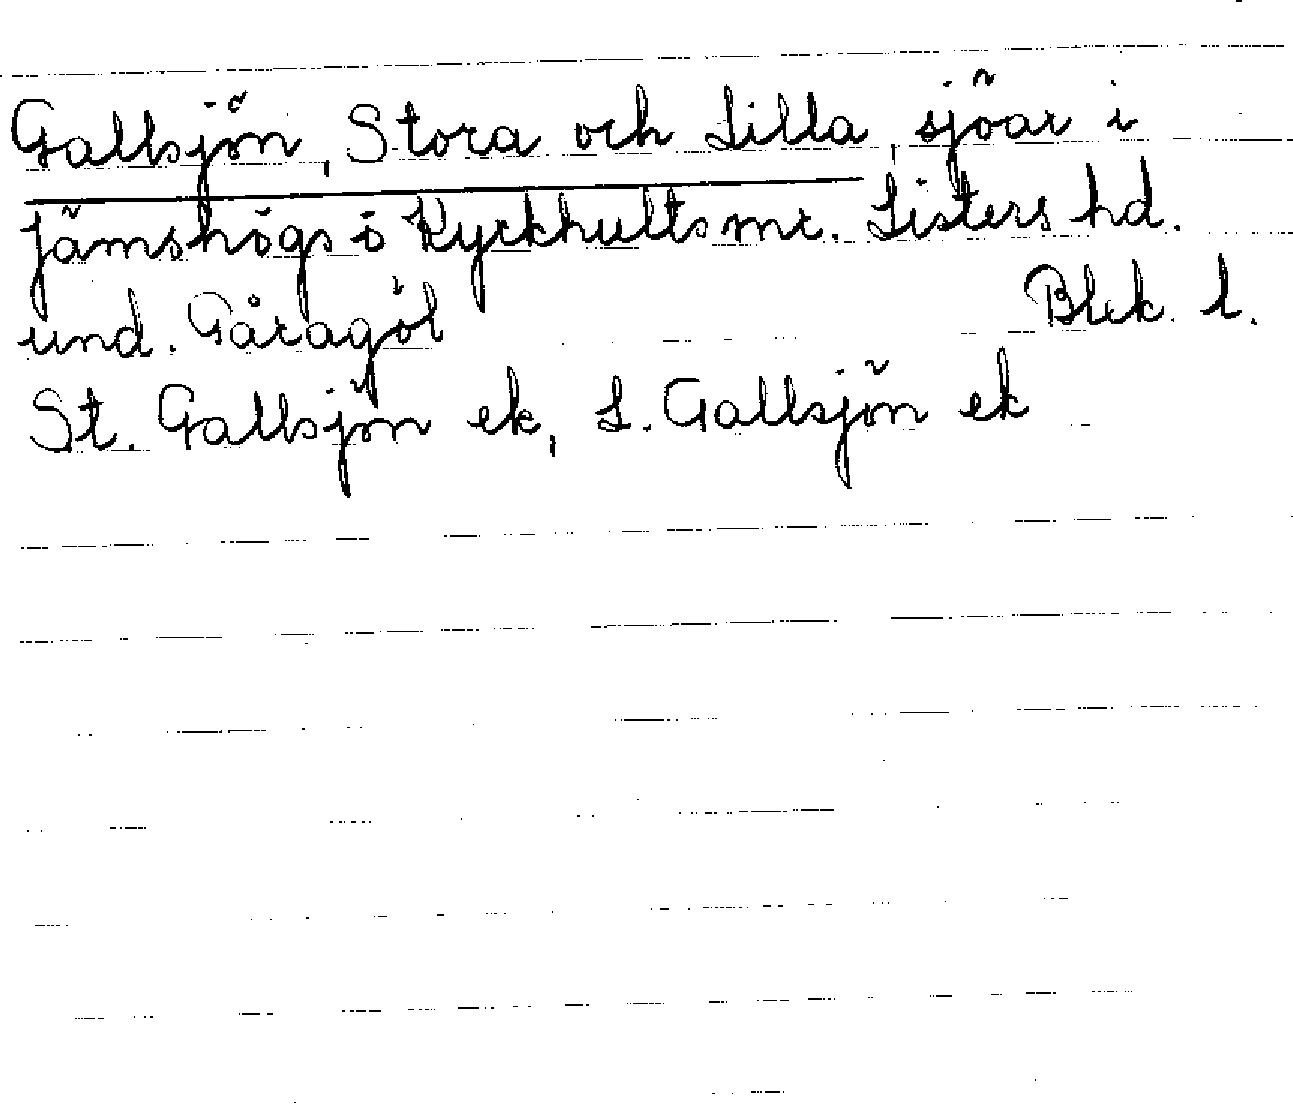 Gallsjön, Stora och Lilla, sjöar i
Jämshögs o Kyrkhults snr. Listers hd.
und. Gåragöl Blek. l.
St. Gallsjön ek, L. Gallsjön ek